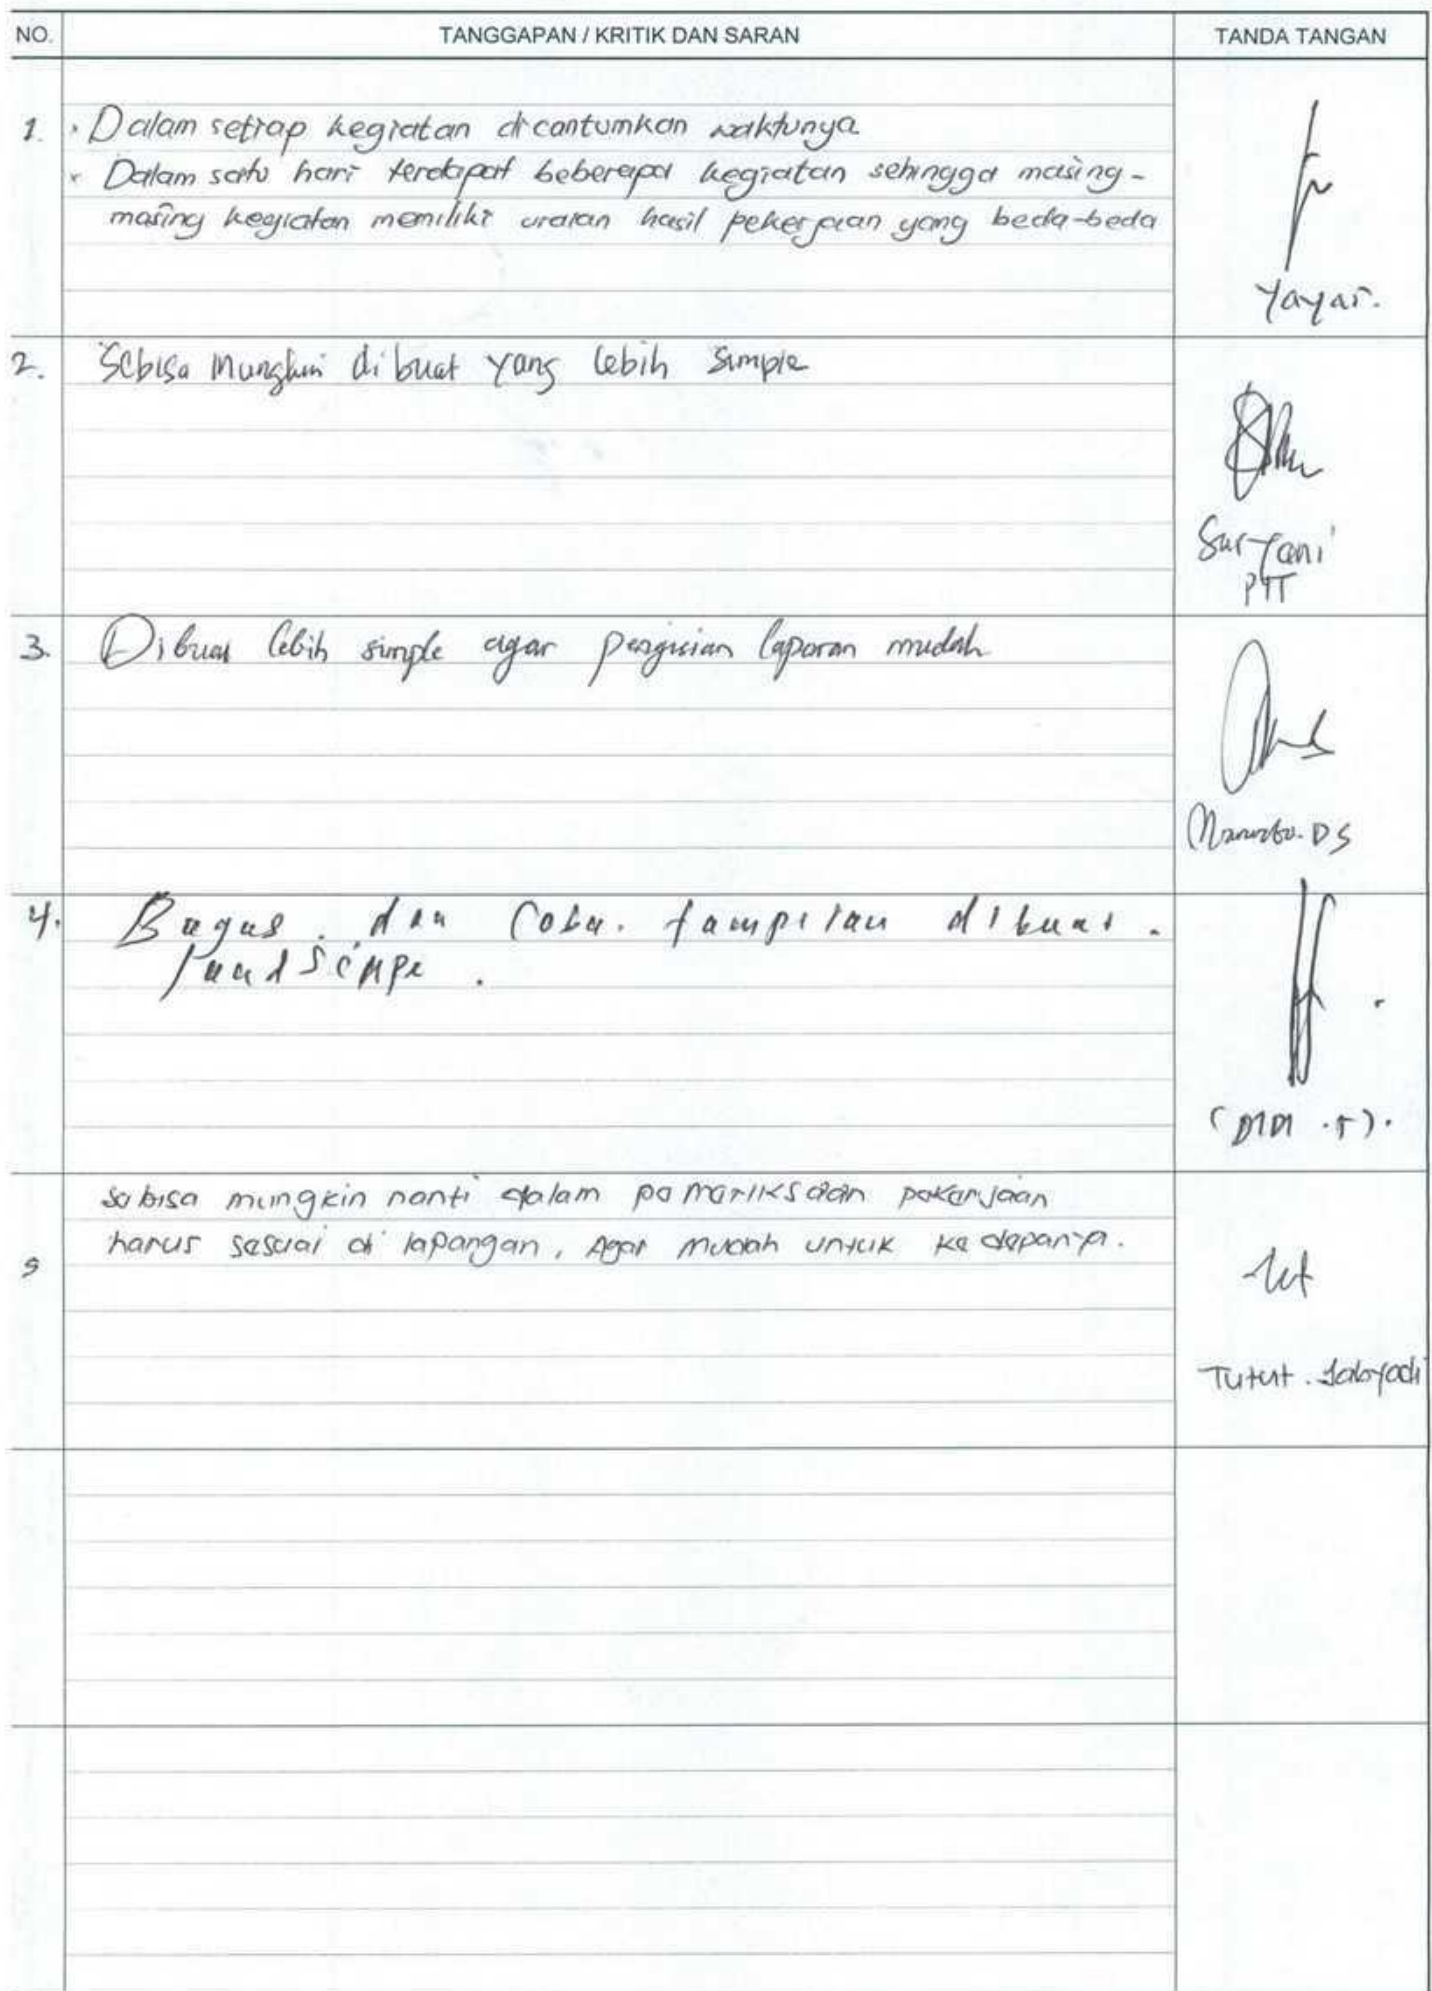 NO. TANGGAPAN / KRITIK DAN SARAN TANDA TANGAN
1. • Dalam setiap kegiatan dicantumkan waktunya
× Dalam satu hari terdapat beberapa kegiatan sehingga masing-
masing kegiatan memiliki uraian hasil pekerjaan yang beda-beda
Yayat.
2. Sebisa mungkin dibuat yang lebih simple
Suryani
PTT
3. Dibuat lebih simple agar pengisian laporan mudah
DS
4. Bagus. dan Coba. tampilan dibuat.
landscape.
5 sebisa mungkin nanti dalam pemeriksaan pekerjaan
harus sesuai di lapangan, Agar mudah untuk kedepannya.
Tutut.